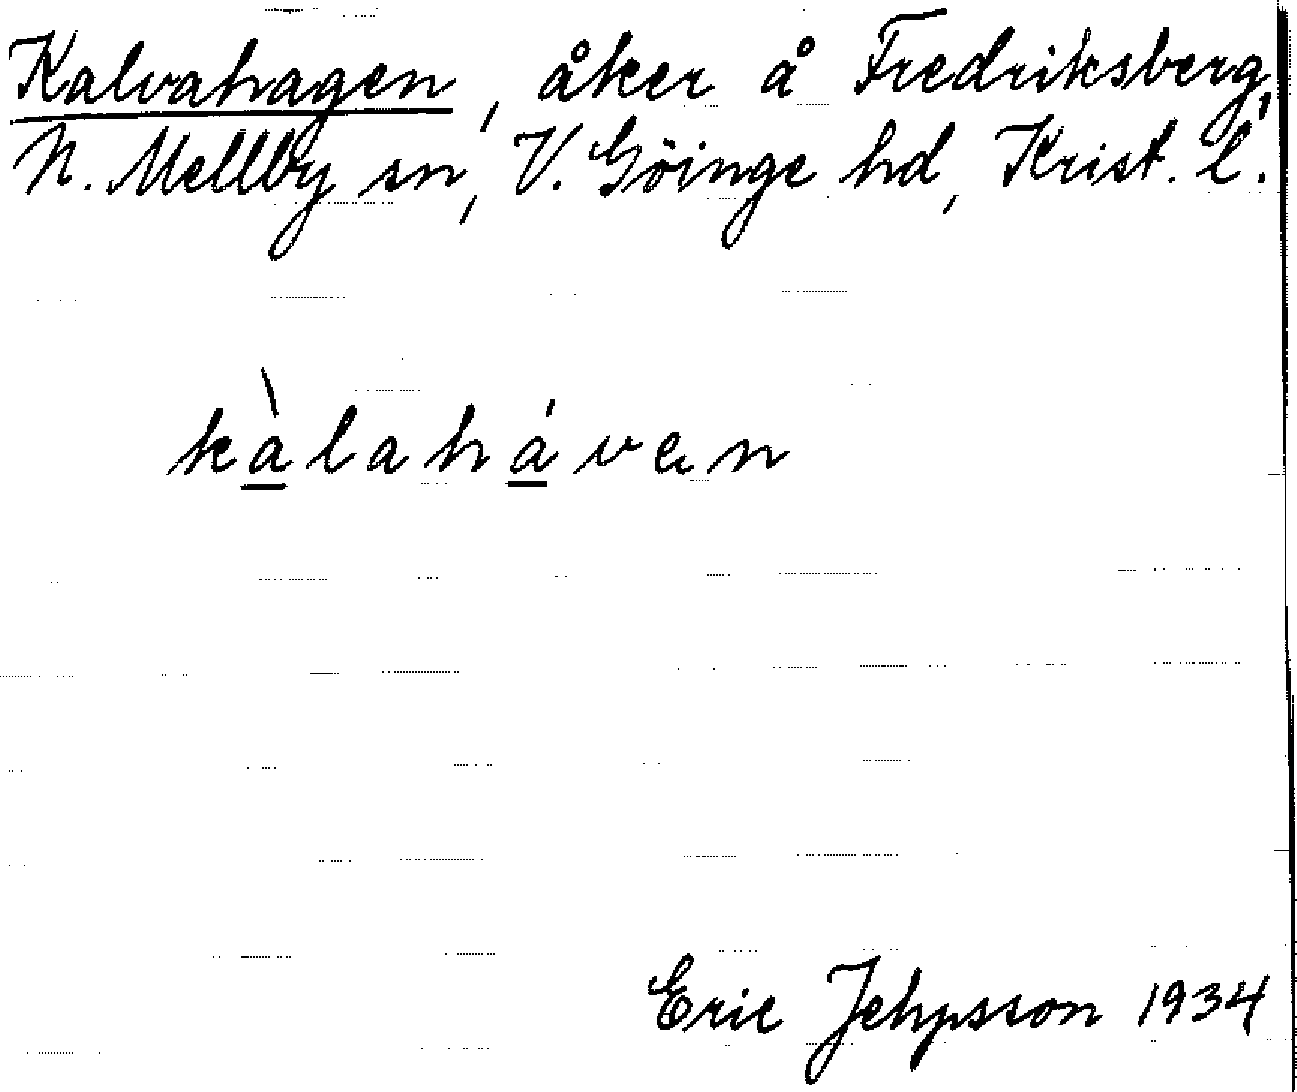 Kalvahagen, åker å Fredriksberg,
N. Mellby sn, V. Göinge hd, Krist. l.
kàlaháven
Eric Jehpsson 1934